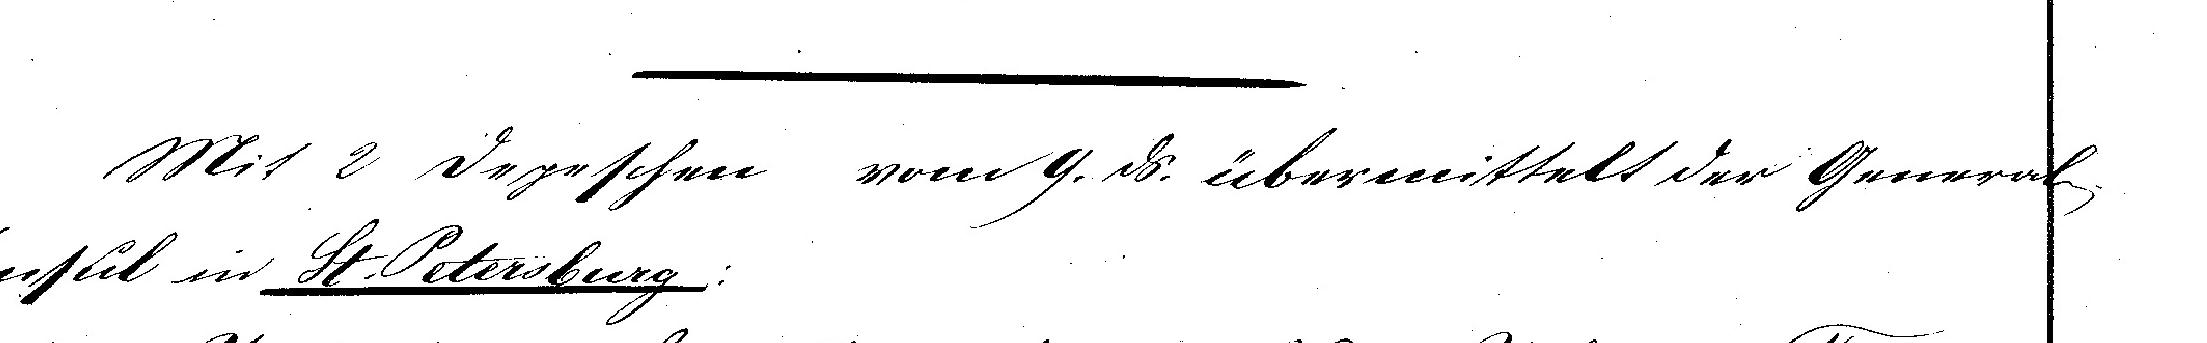 Mit 2 Depeschen vom 9. ds. übermittelt der General-
nsul in St. Petersburg: